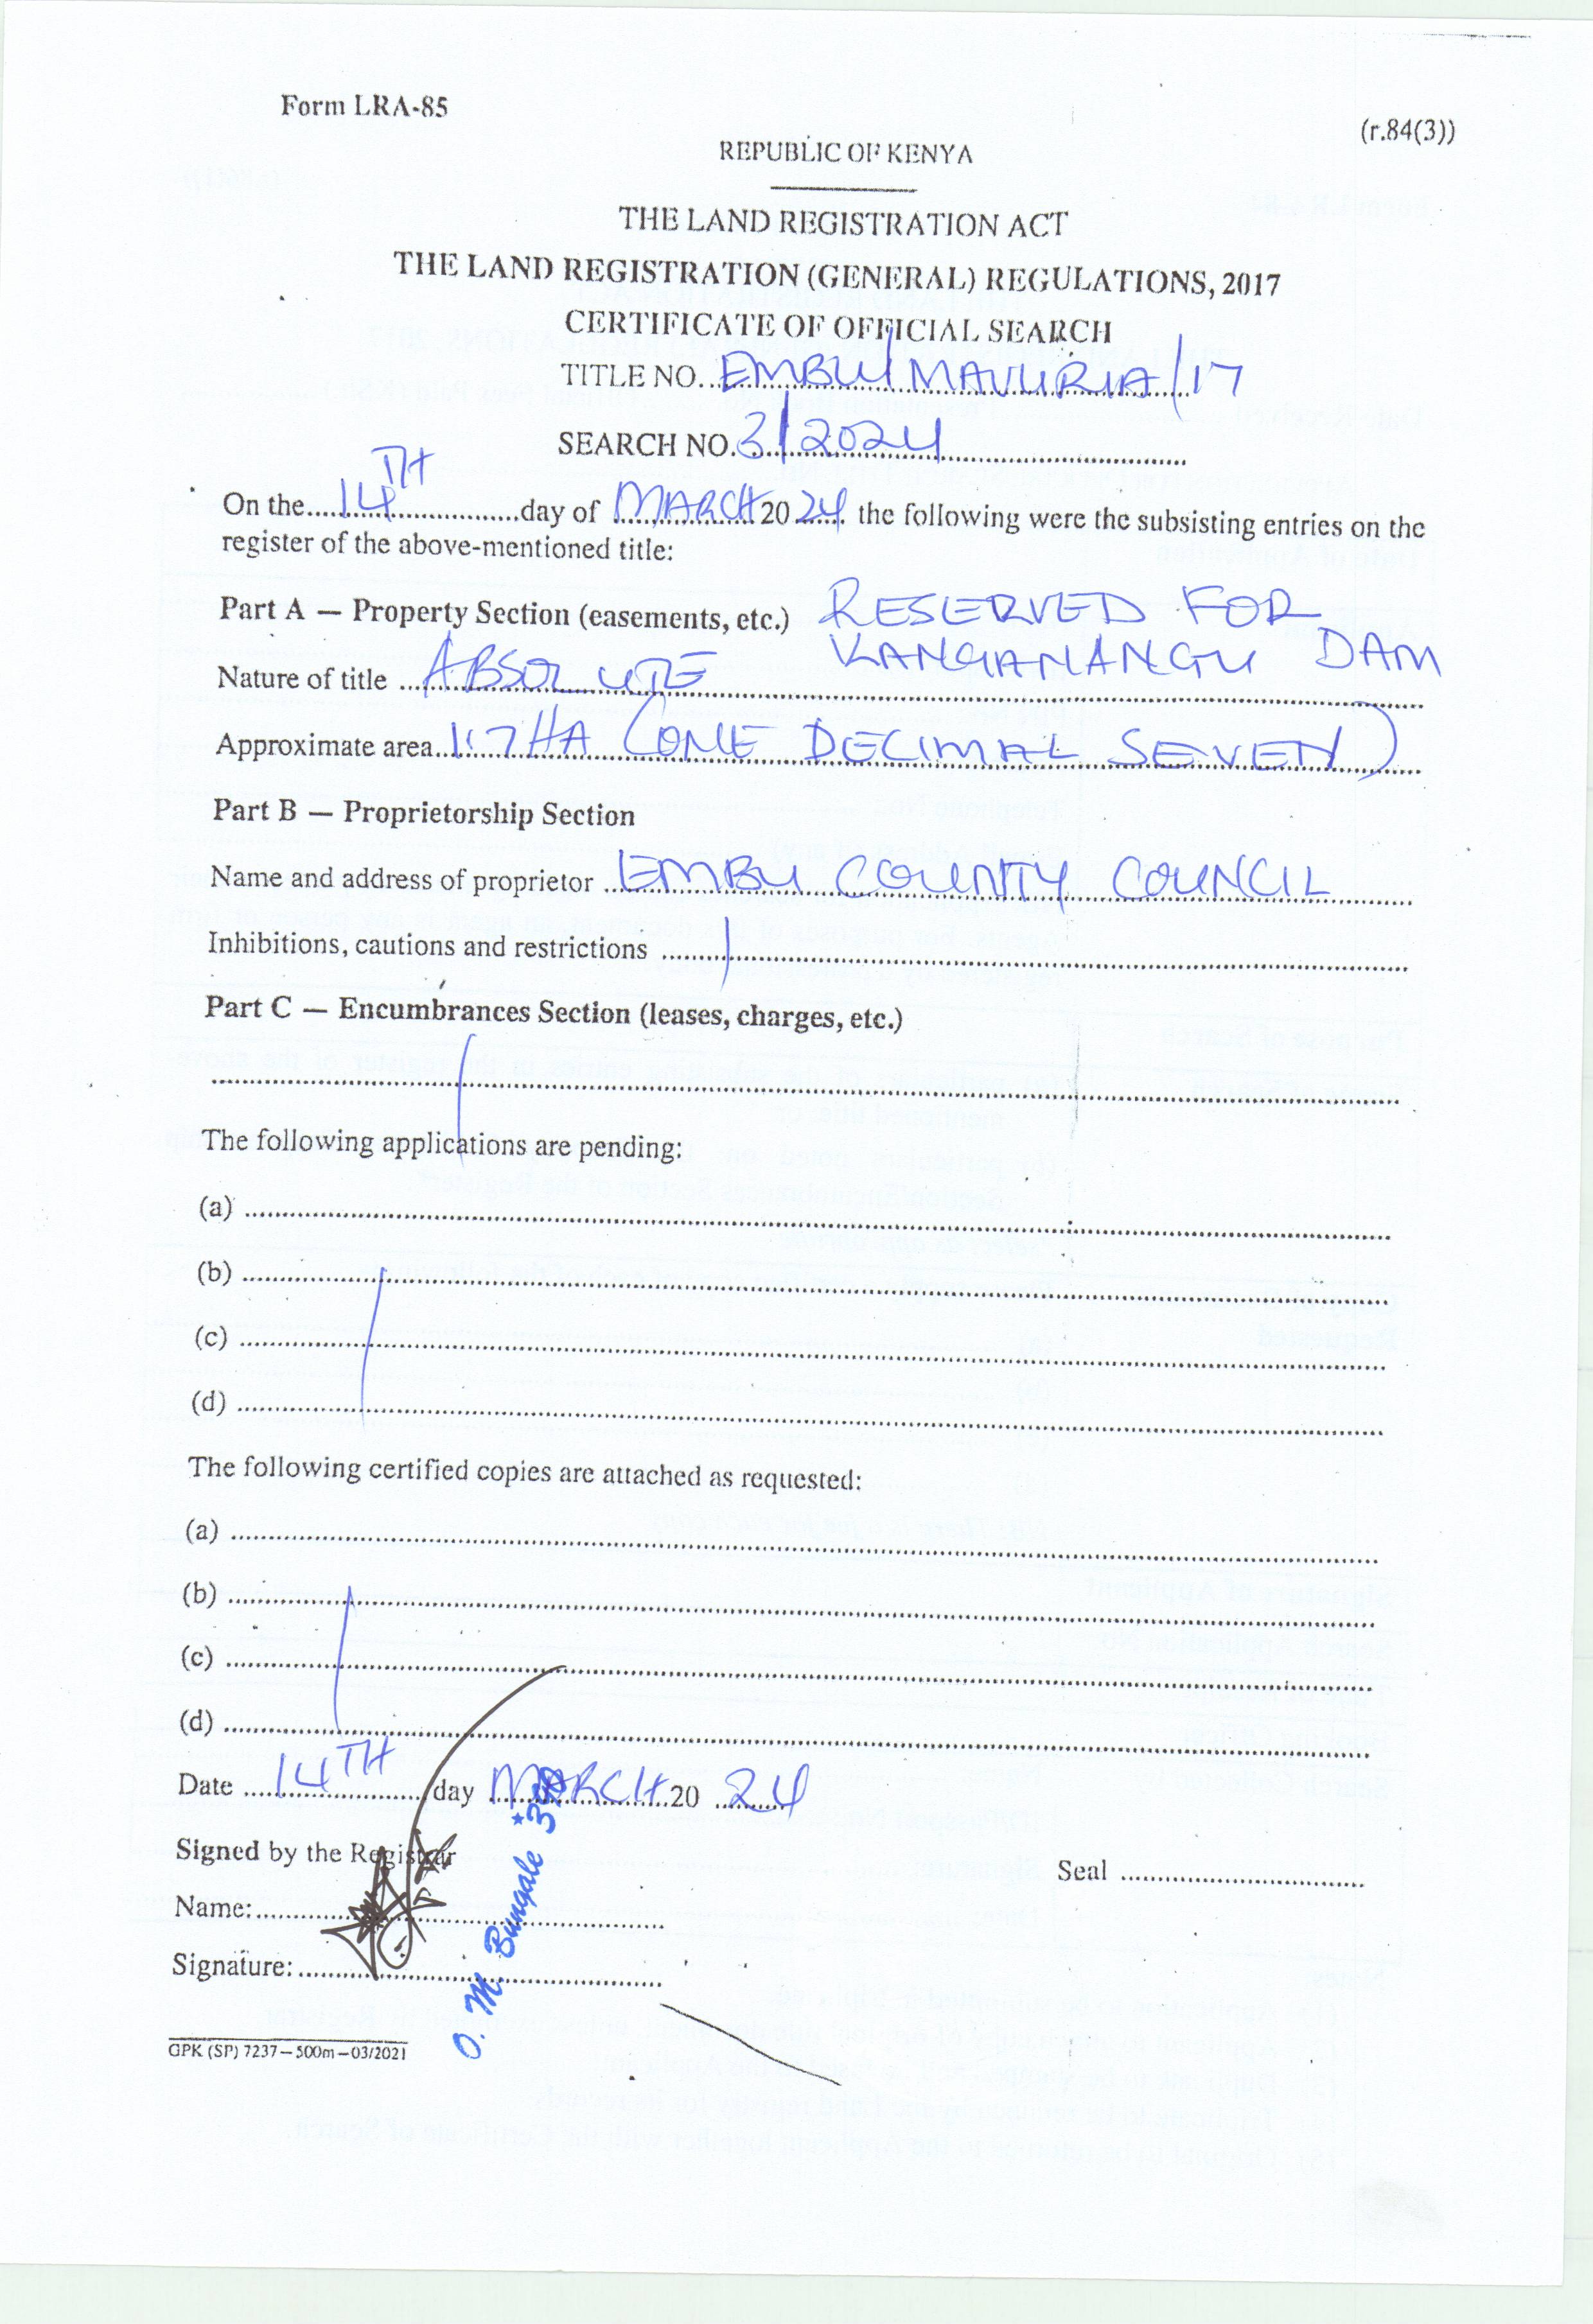 Form LRA-85
(r.84(3))
REPUBLIC OF KENYA
THE LAND REGISTRATION ACT
THE LAND REGISTRATION (GENERAL) REGULATIONS, 2017
CERTIFICATE OF OFFICIAL SEARCH
TITLE NO. EMBU/MAVURIA/17
SEARCH NO. 3/2024
On the 14TH day of MARCH 20 24 the following were the subsisting entries on the
register of the above-mentioned title:
Part A — Property Section (easements, etc.) RESERVED FOR
KANGANANGU DAM
Nature of title ABSOLUTE
Approximate area 1.7HA (ONE DECIMAL SEVEN)
Part B — Proprietorship Section
Name and address of proprietor EMBU COUNTY COUNCIL
Inhibitions, cautions and restrictions
Part C — Encumbrances Section (leases, charges, etc.)
The following applications are pending:
(a)
(b)
(c)
(d)
The following certified copies are attached as requested:
(a)
(b)
(c)
(d)
Date 14TH day MARCH 20 24
Signed by the Registrar
Seal
Name:
Signature:
O. M. Bungale *
GPK (SP) 7237—500m—03/2021